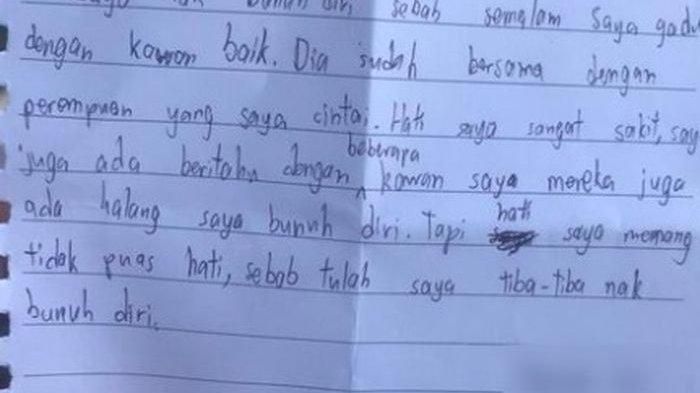 saya nak bunuh diri sebab semalam saya gadu
dengan kawan baik. Dia sudah bersama dengan
perempuan yang saya cintai. Hati saya sangat sakit, say
juga ada beritahu dengan beberapa kawan saya mereka juga
ada halang saya bunuh diri. Tapi hati saya memang
tidak puas hati, sebab tulah saya tiba-tiba nak
bunuh diri.